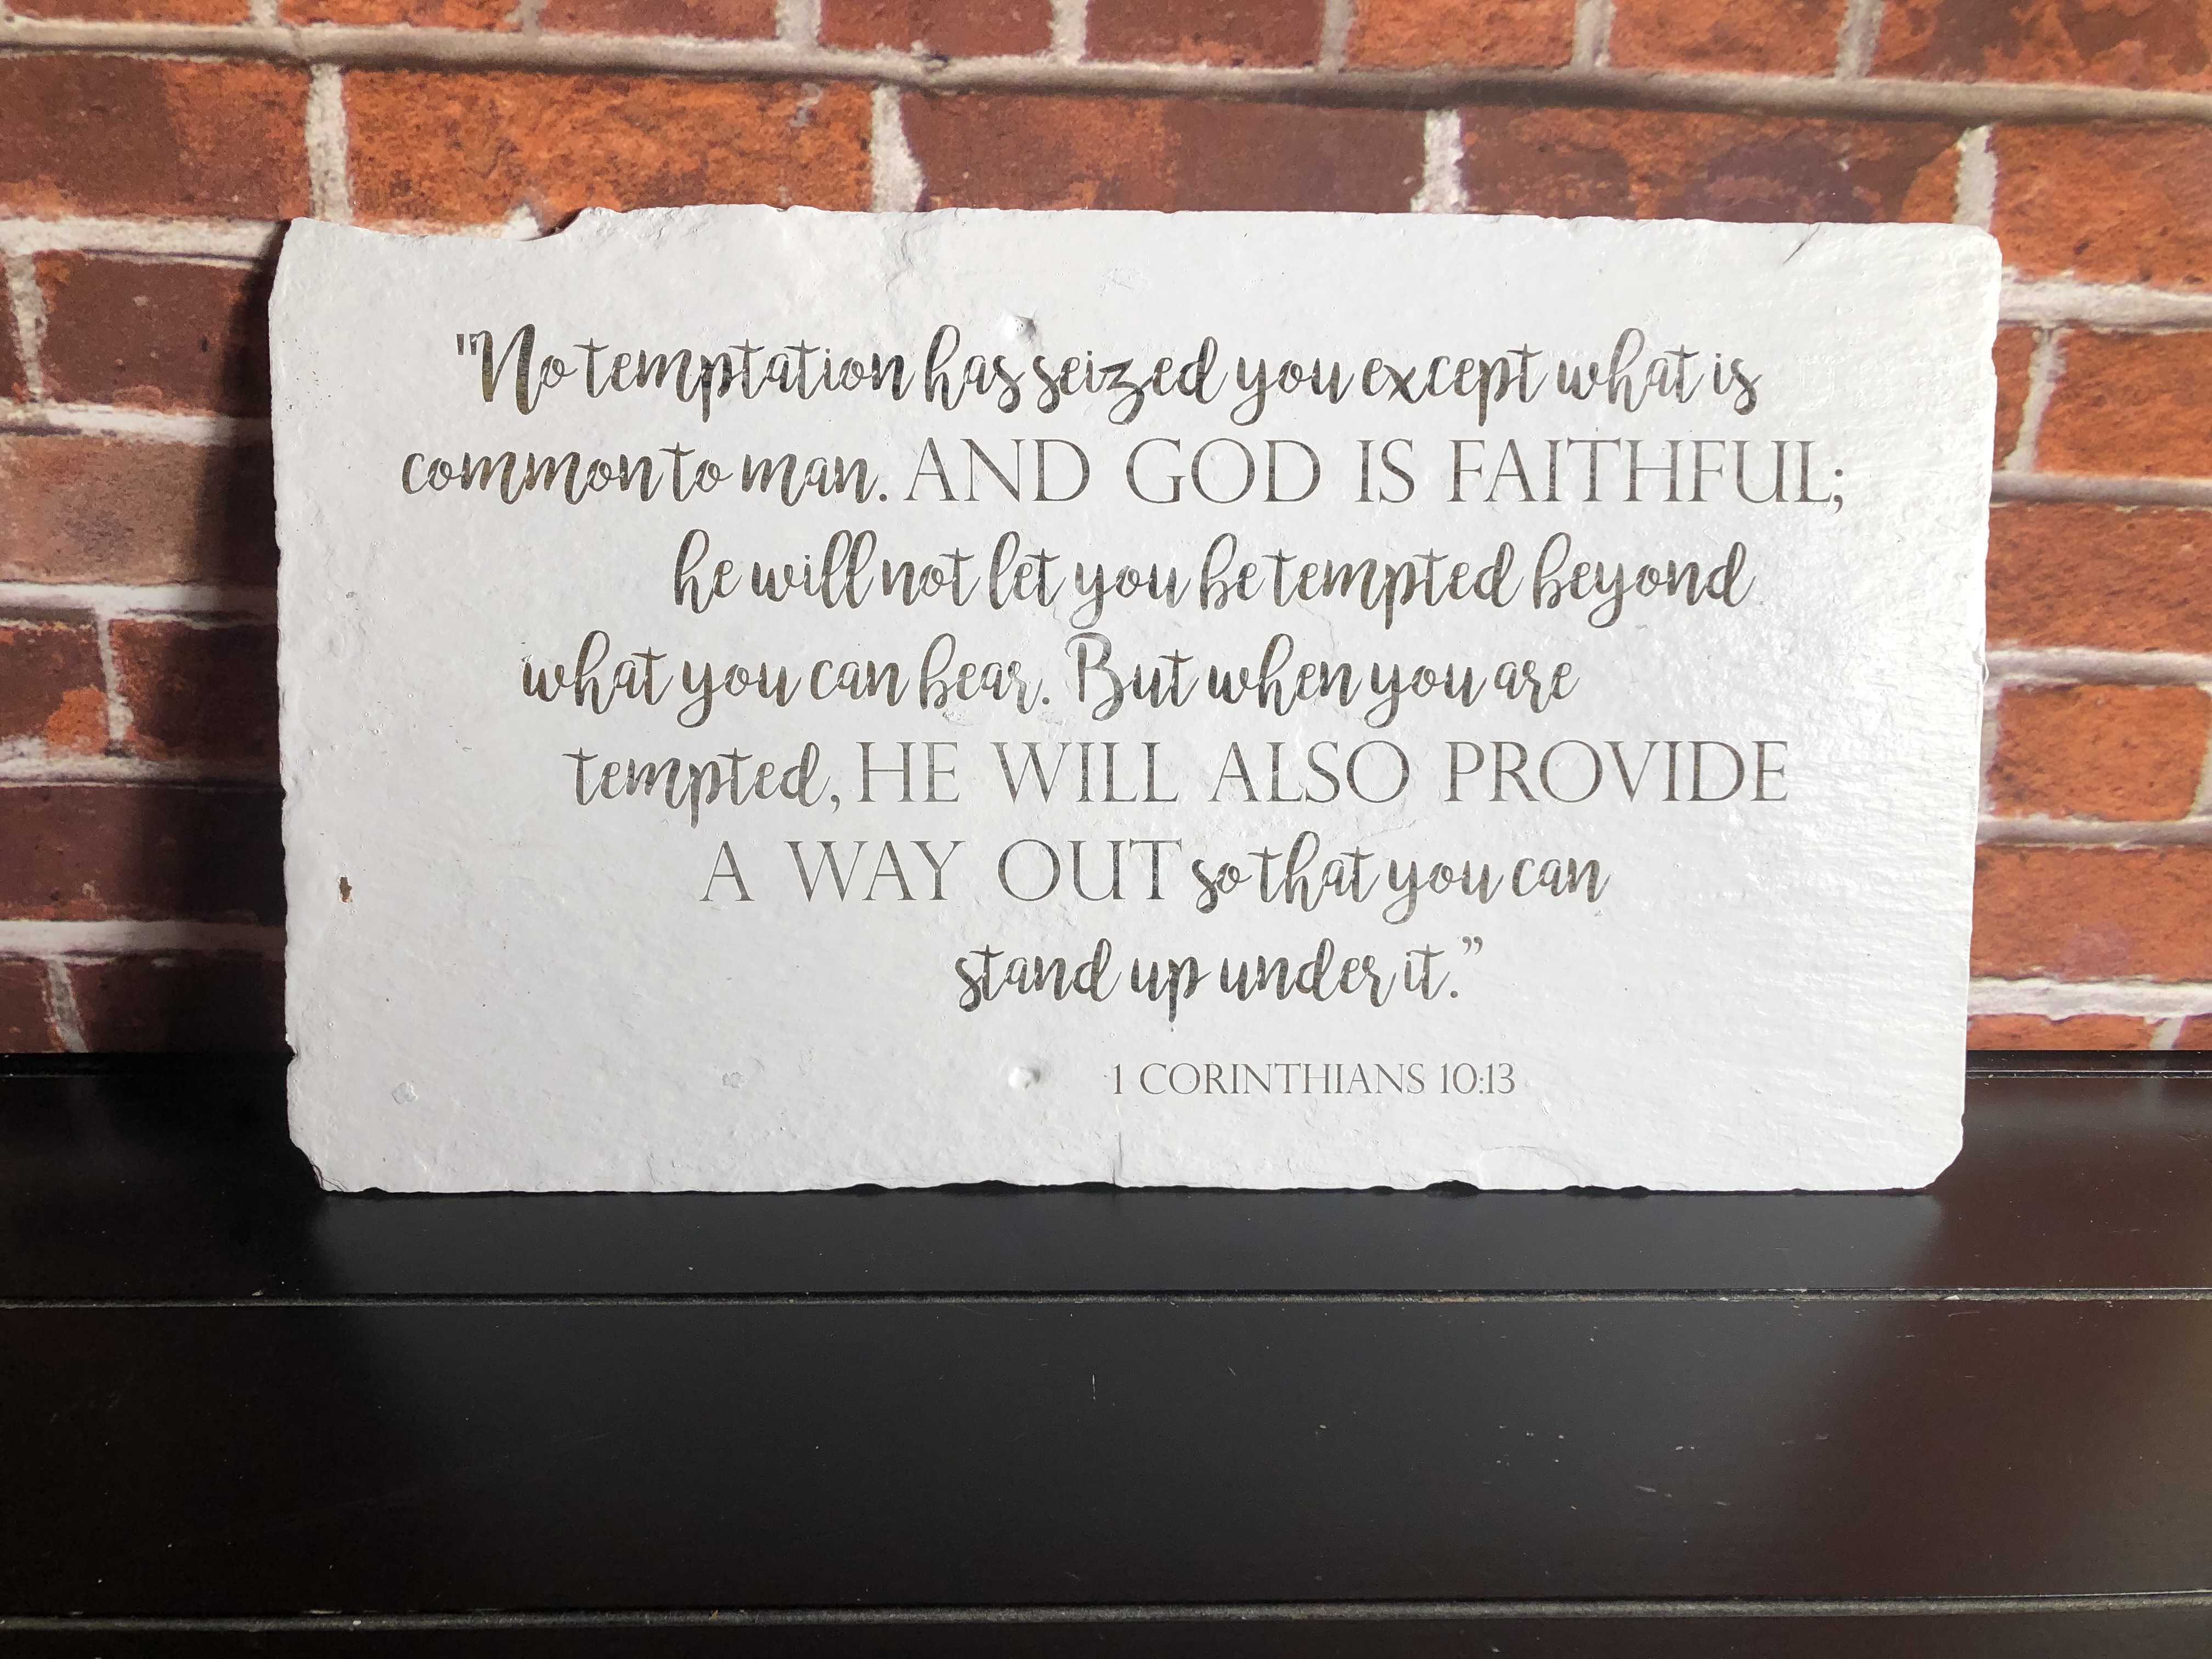 "No temptation has seized you except what is
common to man. AND GOD IS FAITHFUL;
he will not let you be tempted beyond
what you can bear. But when you are
tempted, HE WILL ALSO PROVIDE
A WAY OUT so that you can
stand up under it.”
1 CORINTHIANS 10:13